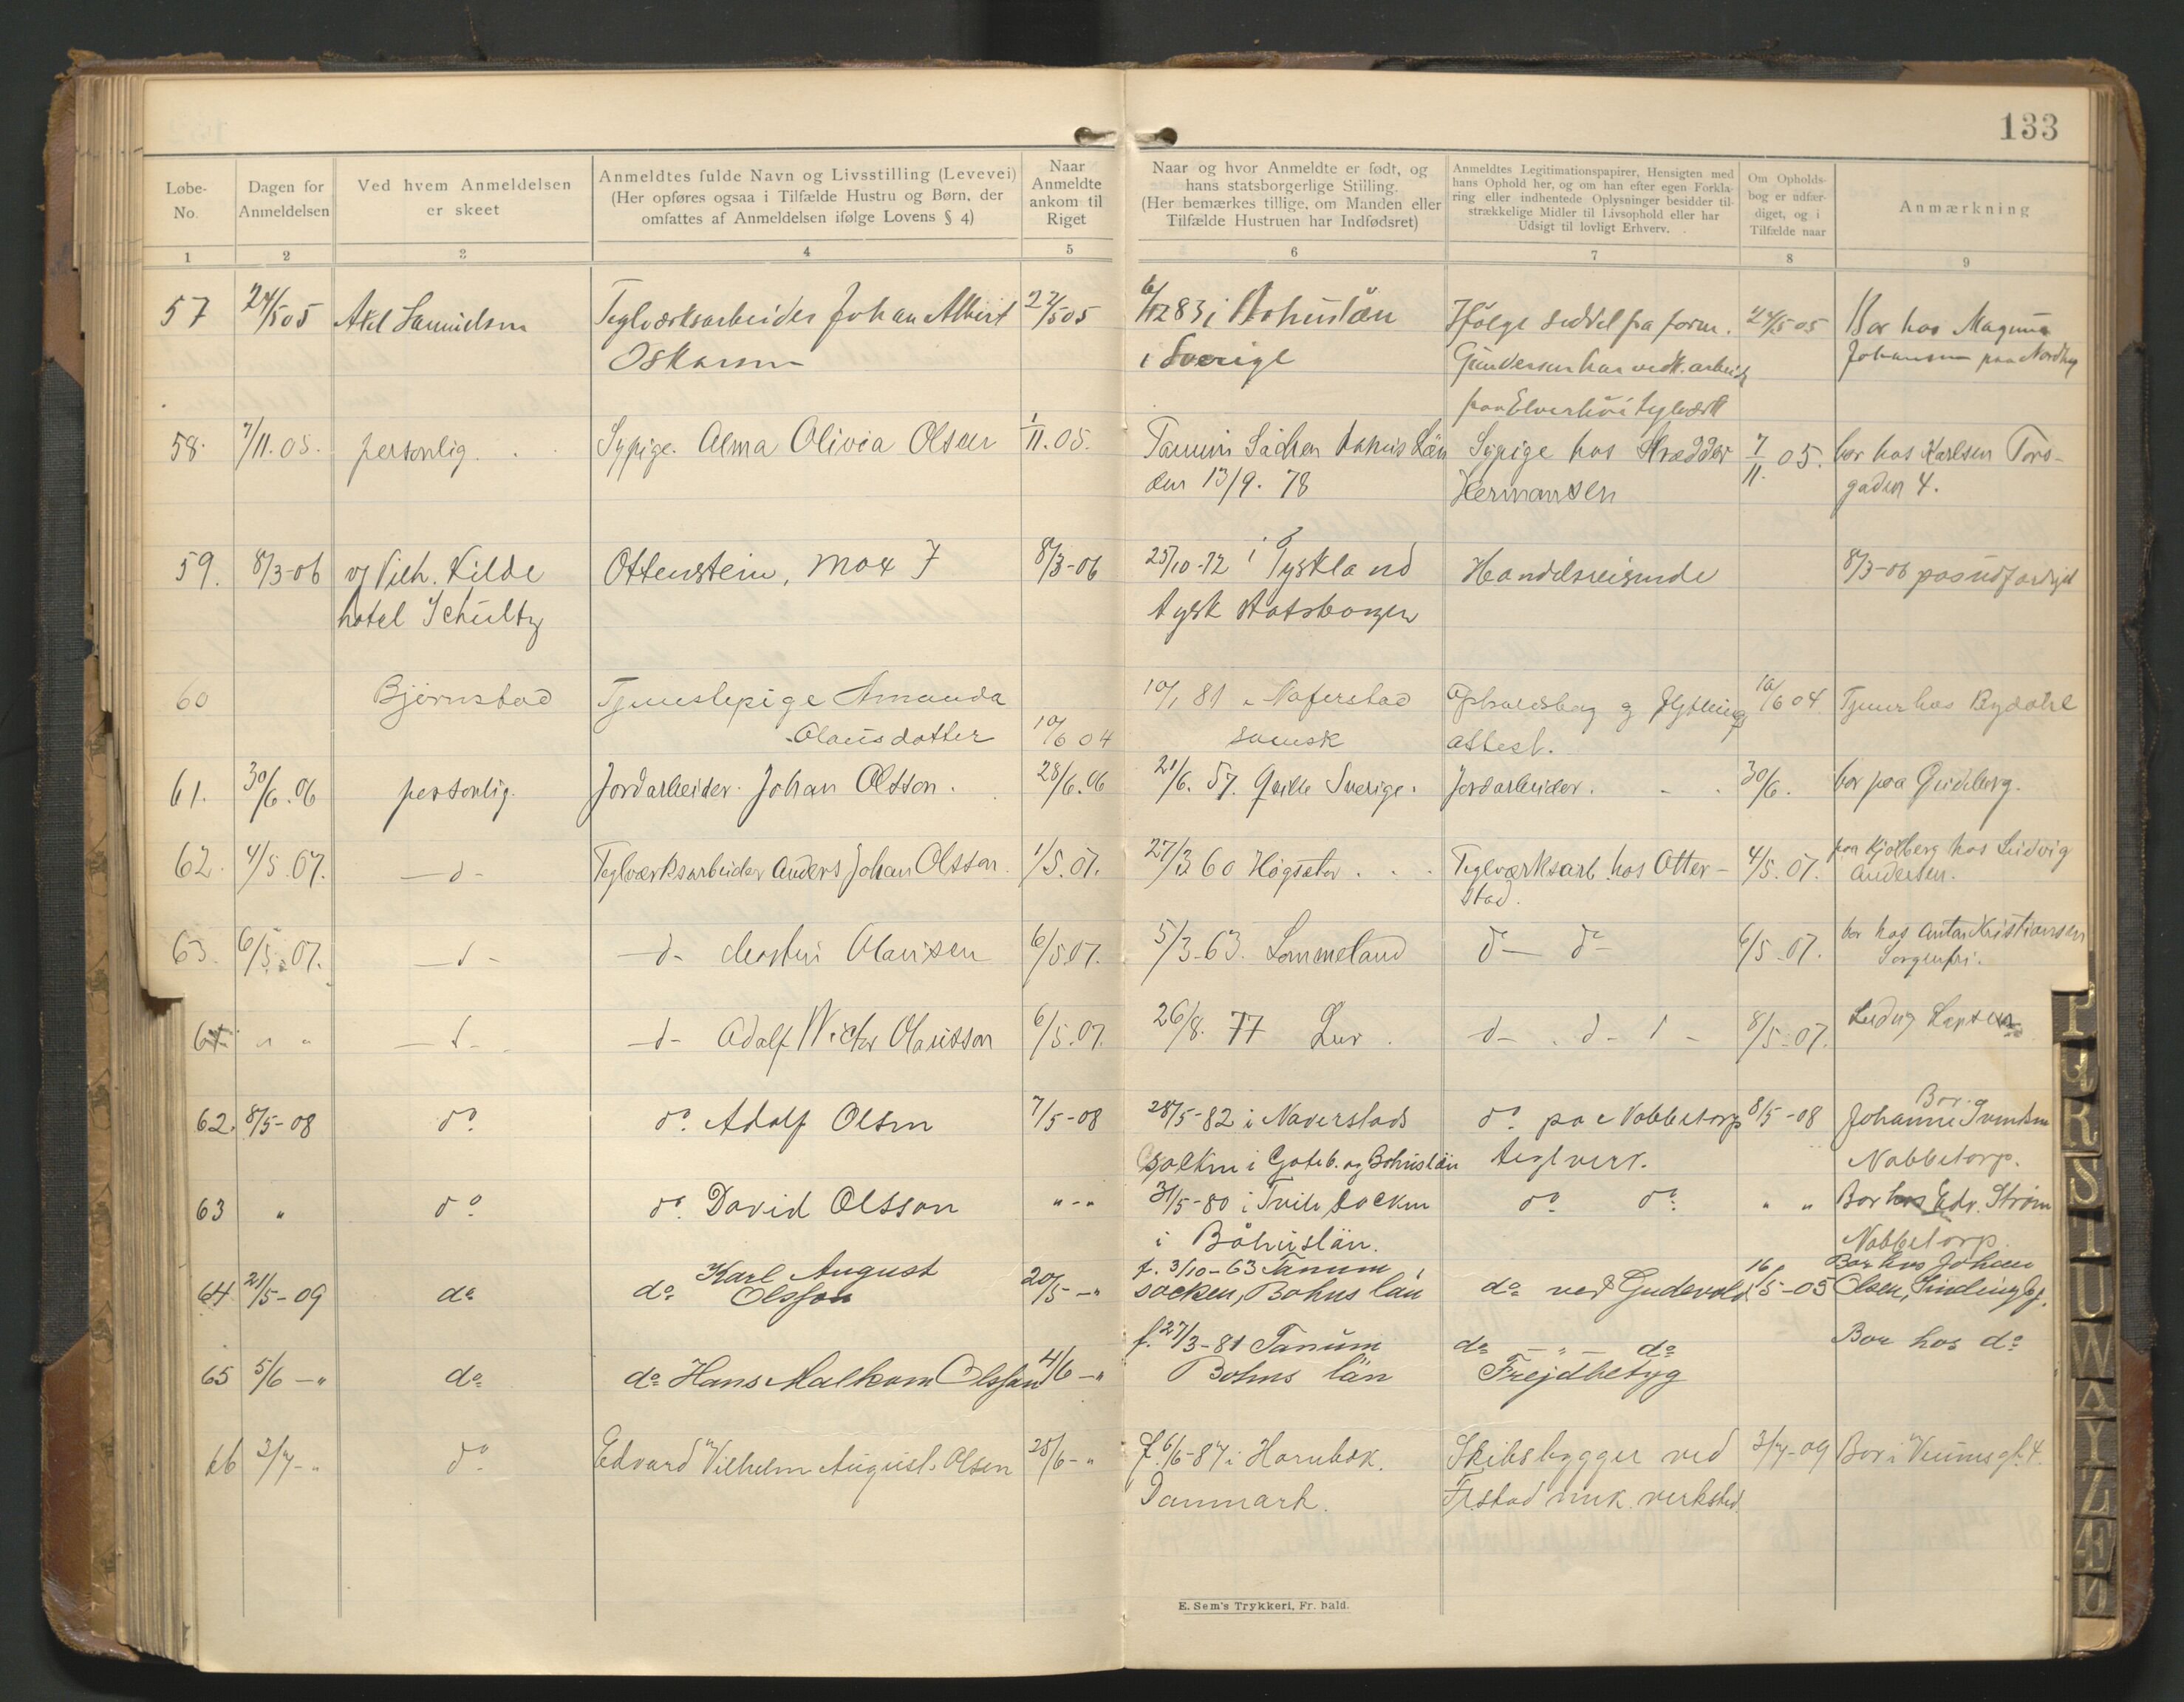 133
Løbe-
No.
Dagen for
Anmeldelsen
Ved hvem Anmeldelsen
er skeet
Anmeldtes fulde Navn og Livsstilling (Levevei)
(Her opføres ogsaa i Tilfælde Hustru og Børn, der
omfattes af Anmeldelsen ifølge Lovens § 4)
Naar
Anmeldte
ankom til
Riget
Naar og hvor Anmeldte er født, og
hans statsborgerlige Stilling.
(Her bemærkes tillige, om Manden eller
Tilfælde Hustruen har Indfødsret)
Anmeldtes Legitimationspapirer, Hensigten med
hans Ophold her, og om han efter egen Forkla-
ring eller indhentede Oplysninger besidder til-
strækkelige Midler til Livsophold eller har
Udsigt til lovligt Erhverv.
Om Opholds-
bog er udfær-
diget, og i
Tilfælde naar
Anmærkning
1 2 3 4 5 6 7 8 9
57 24/5 05 Axel Samuelsen Teglværksarbeider Johan Albert 22/5 05 6/12 83 i Bohuslän Ifølge seddel fra form. 24/5 05 Bor hos Magnus
Oskarsen i Sverige Gundersen har vedk. arbeide Johansen paa Nordby
paa Elverhöi teglværk
58. 7/11. 05. personlig. Sypige. Alma Olivia Olsen 1/11. 05. Tanum Socken Bohus Län Sypige hos Skrædder 7/11. 05. bor hos Karlsen Tors-
den 13/9. 78 Hermansen gaden 4.
59. 8/3-06 v/ Vilh. Kilde Ottenstein, Max J 8/3-06 25/10-72 i Tyskland Handelsreisende 8/3-06 pas udfærdiget
hotel Schultz tysk statsborger
60 Bjørnstad Tjenestepige Amanda 10/1 81 Naferstad Opholdsbog og flytnings 10/6 04. Tjener hos Bydahl
Olausdatter 10/6 04 svensk attest.
61. 30/6. 06 personlig. Jordarbeider. Johan Olsson. 28/6. 06 21/6. 57. Qville Sverige. Jordarbeider. 30/6. bor paa Guldberg.
62. 4/5. 07. —d— Teglværksarbeider Anders Johan Olsson. 1/5. 07. 27/3 60 Högsäter. Teglværksarb. hos Otter- 4/5. 07. paa Kjølberg hos Ludvig
stad. Andersen.
63. 6/5. 07. —d— —d- Olausen 6/5 07. 5/3-63. Lommeland do— do— 6/5-07. bor hos Anton Kristiansen
Sorgenfri.
64 " " —d— —d- Adolf Victor Olausson 6/5. 07. 26/8. 77 Lur. d— . d— d— 8/5-07. Ludvig
62. 8/5-08 do. do. Adolf Olsen 7/5-08 28/5-82 i Naverstads do. paa Nabbetorp 8/5-08 Bor.
Johanne Svendsen
socken i Göteb. og Bohuslän teglverk. Nabbetorp.
63 " do do. David Olsson "-" 31/5-80 i socken do. do. " " Bor hos Edv. Strøm
i Bohuslän. Nabbetorp.
64 21/5-09 do do Karl August
Olsson 20/5-" f. 3/10-63 Tanum
socken, Bohus län do ved Gudevold 16/5-09 Bor hos Johan
Olsen,
65 5/6-" do do Hans Malkom Olsson 4/6-" f. 27/3-81 Tanum do — " — do Bor hos do
Bohus län Frejdbetyg
66 3/7-" do Edvard Vilhelm August. Olsen 25/6-" f. 6/6-87 i Hornbæk. Skibsbygger ved 3/7-09 Bor i gt. 4.
Danmark. Frstad mek. verksted.
E. Sem's Trykkeri, Fr. hald.
P
Q
R
S
T
U
W
A
Y
Z
Æ
Ø